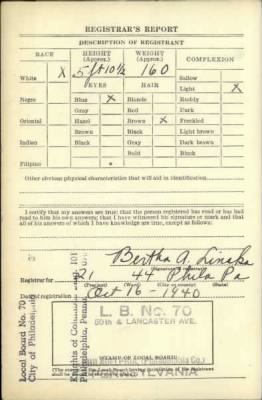 REGISTRAR'S REPORT
DESCRIPTION OF REGISTRANT
RACE HEIGHT (Approx.) WEIGHT (Approx.) COMPLEXION
White X 5 ft 10 ½ 160 Sallow
EYES HAIR Light X
Negro Blue X Blonde Ruddy
Gray Red Dark
Oriental Hazel Brown X Freckled
Brown Black Light brown
Indian Black Gray Dark brown
Bald Black
Filipino
Other obvious physical characteristics that will aid in identification
I certify that my answers are true; that the person registered has read or has had read to him his own answers; that I have witnessed his signature or mark and that all of his answers of which I have knowledge are true, except as follows:
Bertha A.
Registrar for R1 44 Phila Pa
(Precinct) (Ward) (City or county) (State)
Date of registration Oct 16-1940
Local Board No. 70
City of Philadelphia
Knights of
Philadelphia, Penna.
L. B. No. 70
50th & LANCASTER AVE.
STAMP OF LOCAL BOARD
PENNSYLVANIA
(The stamp of the Local Board having jurisdiction of the registrant shall be placed in the above space.)